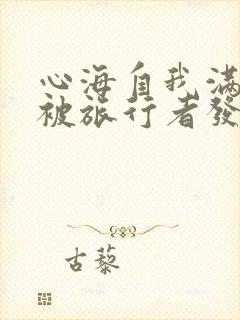 心海自我滿
被旅行者發
古藜